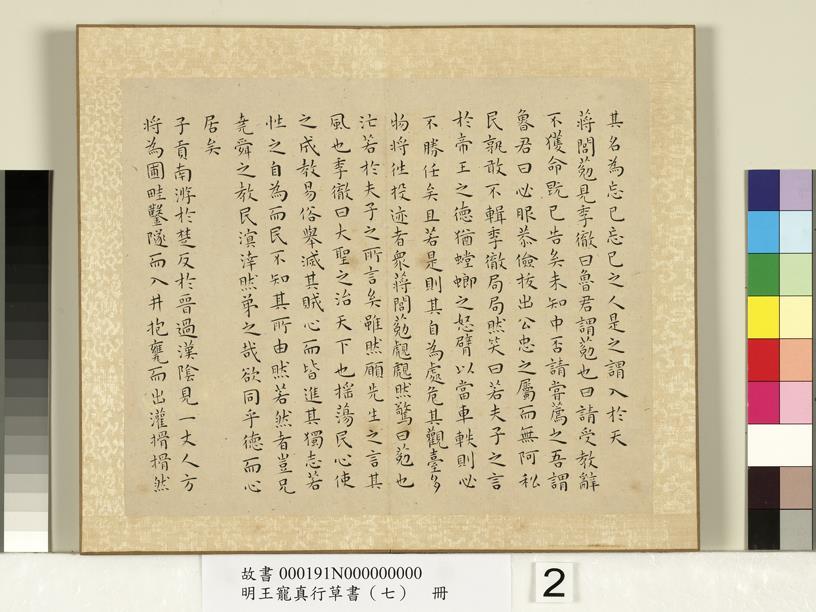 其名為忘己忘己之人是之謂入於天
蔣閭葂見季徹曰魯君謂葂也曰請受教辭
不獲命既已告矣未知中否請嘗薦之吾謂
魯君曰必服恭儉拔出公忠之屬而無阿私
民孰敢不輯季徹局局然笑曰若夫子之言
於帝王之德猶螳螂之怒臂以當車軼則必
不勝任矣且若是則其自為處危其觀臺多
物將往投迹者眾蔣閭葂覤覤然驚曰葂也
汒若於夫子之所言矣雖然願先生之言其
風也季徹曰大聖之治天下也搖蕩民心使
之成教易俗舉滅其賊心而皆進其獨志若
性之自為而民不知其所由然若然者豈兄
堯舜之教民溟涬然弟之哉欲同乎德而心
居矣
子貢南游於楚反於晉過漢陰見一丈人方
將為圃畦鑿隧而入井抱甕而出灌搰搰然
故書000191N000000000
明王寵真行草書（七） 冊
2